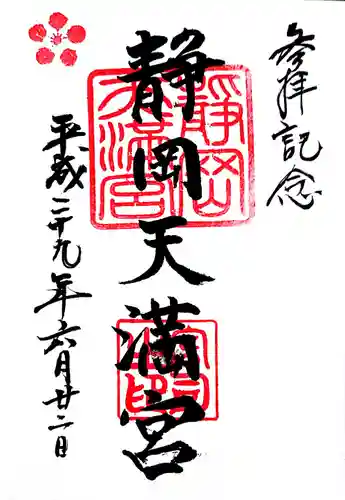 参拝記念
静岡天満宮
平成二十九年六月廿二日